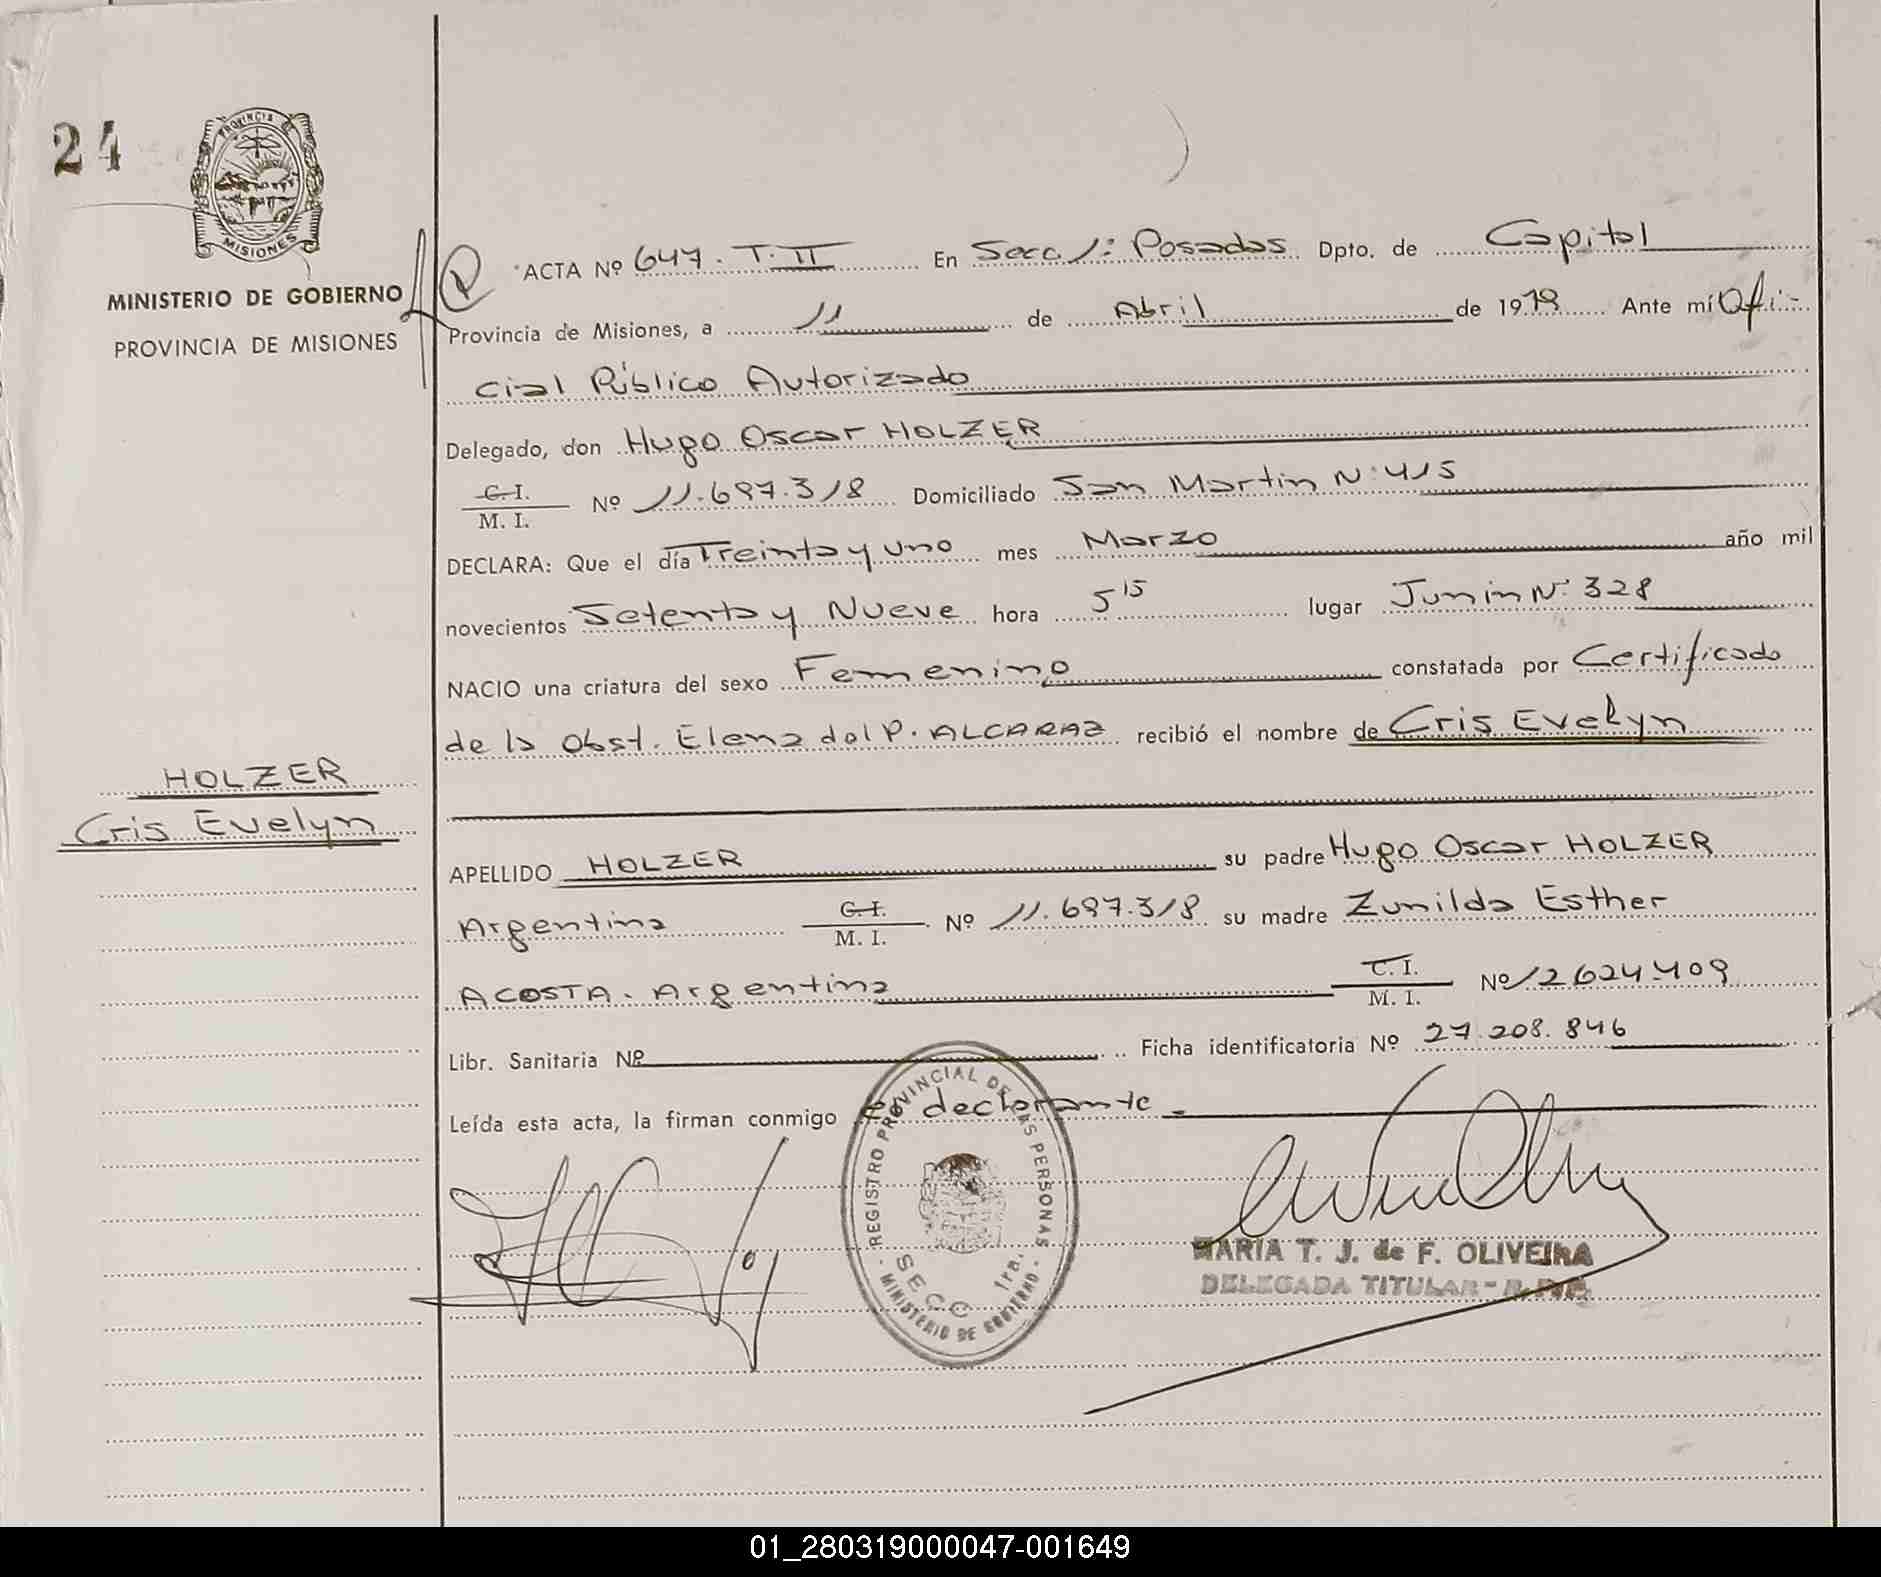 24
PROVINCIA DE
MISIONES
MINISTERIO DE GOBIERNO
PROVINCIA DE MISIONES
HOLZER
Cris Evelyn
ACTA Nº 647. T. II En Secc 1: Posadas Dpto. de Capital
Provincia de Misiones, a 11 de Abril de 1979 Ante mí Ofi-
cial Público Autorizado
Delegado, don Hugo Oscar HOLZER
C.I.
M. I. Nº 11.697.318 Domiciliado San Martin N: 415
DECLARA: Que el día Treinta y uno mes Marzo año mil
novecientos Setenta y Nueve hora 5 15 lugar Junin N: 328
NACIO una criatura del sexo Femenino constatada por Certificado
de la Obst. Elena del P. ALCARAZ recibió el nombre de Cris Evelyn
APELLIDO HOLZER su padre Hugo Oscar HOLZER
Argentina C.I. M. I. Nº 11.697.318 su madre Zunilda Esther
ACOSTA. Argentina C.I. M. I. Nº 12624409
Libr. Sanitaria Nº Ficha identificatoria Nº 27.208.846
Leída esta acta, la firman conmigo el declarante
REGISTRO PROVINCIAL DE LAS PERSONAS
SECC 1ra.
MINISTERIO DE GOBIERNO
MARIA T. J. de F. OLIVEIRA
DELEGADA TITULAR - R. P. P.
01_280319000047-001649